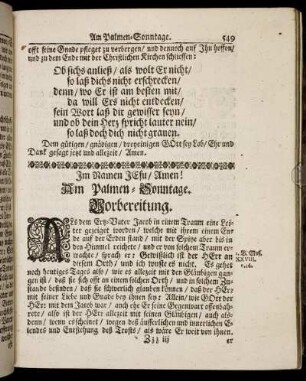 Am Palmen-Sonntage. 549
offt seine Gnade pfleget zu verbergen/ und dennoch auf Ihn hoffen/
und zu dem Ende mit der Christlichen Kirchen schliessen:
Ob sichs anließ/ als wolt Er nicht/
so laß dichs nicht erschrecken/
denn/ wo Er ist am besten mit/
da will Ers nicht entdecken/
sein Wort laß dir gewisser seyn/
und ob dein Hertz spricht lauter nein/
so laß doch dich nicht grauen.
Dem gütigen/ gnädigen/ dreyeinigen GOtt sey Lob/ Ehr und
Danck gesagt jetzt und allezeit/ Amen.
Im Namen JEsu/ Amen!
Am Palmen-Sonntage.
Vorbereitung.
ALs dem Ertz-Vater Jacob in einem Traum eine Lei-
ter gezeiget worden/ welche mit ihrem einem En-
de auf der Erden stand/ mit der Spitze aber bis an
den Himmel reichete/ und er von solchem Traum er-
wachte/ sprach er: Gewißlich ist der HErr an
diesem Orth/ und ich wuste es nicht. Es gehet
noch heutiges Tages also/ wie es allezeit mit den Gläubigen gangen
ist/ daß sie sich offt an einem solchen Orth/ und in solchem Zu-
stande befinden/ daß sie schwerlich glauben können/ daß der HErr
mit seiner Liebe und Gnade bey ihnen sey: Allein/ wie GOtt der
HErr mit dem Jacob war/ auch ehe Er seine Gegenwart offenbah-
rete/ also ist der HErr allezeit mit seinen Gläubigen/ auch als-
denn/ wenn es scheinet/ wegen deß äusserlichen und innerlichen E-
lendes und Entziehung deß Trosts/ als wäre Er weit von ihnen.
Zzz iij er